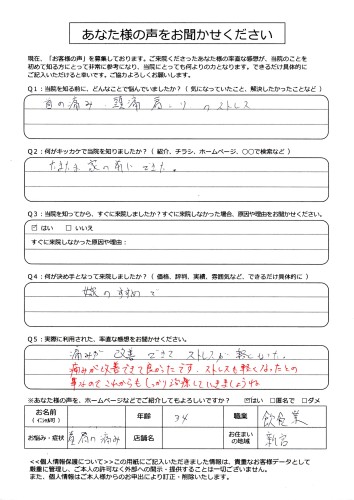 あなた様の声をお聞かせください
現在、「お客様の声」を募集しております。ご来院くださったあなた様の率直な感想が、当院のことを
初めて知る方にとって非常に参考になり、当院にとっても何よりの力となります。できるだけ具体的に
ご記入いただけると幸いです。ご協力よろしくお願いします。
Q1:当院を知る前に、どんなことで悩んでいましたか?( 気になっていたこと、解決したかったことなど )
首の痛み、頭痛 肩こりのストレス
Q2:何がキッカケで当院を知りましたか?( 紹介、チラシ、ホームページ、〇〇で検索など )
たまたま 家の前にできた。
Q3:当院を知ってから、すぐに来院しましたか?すぐに来院しなかった場合、原因や理由をお聞かせください。
☑ はい □ いいえ
すぐに来院しなかった原因や理由:
Q4:何が決め手となって来院しましたか?( 価格、評判、実績、雰囲気など、できるだけ具体的に )
嫁のすすめで
Q5:実際に利用された、率直な感想をお聞かせください。
痛みが 改善 できて ストレスが 軽くなった。
痛みが改善できて良かったです。ストレスも軽くなったとの
事なのでこれからもしっかり治療していきましょうね
※あなた様の声を、ホームページなどでご紹介してもよろしいですか? ☑はい □匿名で □ダメ
お名前
(イニシャル可)
年齢
34
職業
飲食業
お悩み・症状
首肩の痛み
店舗名
お住まい
の地域
新宿
<<個人情報保護について>>この用紙にご記入いただきました情報は、貴重なお客様データとして
厳重に管理し、ご本人の許可なく外部への開示・提供することは一切ございません。
また、個人情報はご本人様からのお申出により訂正・削除いたします。